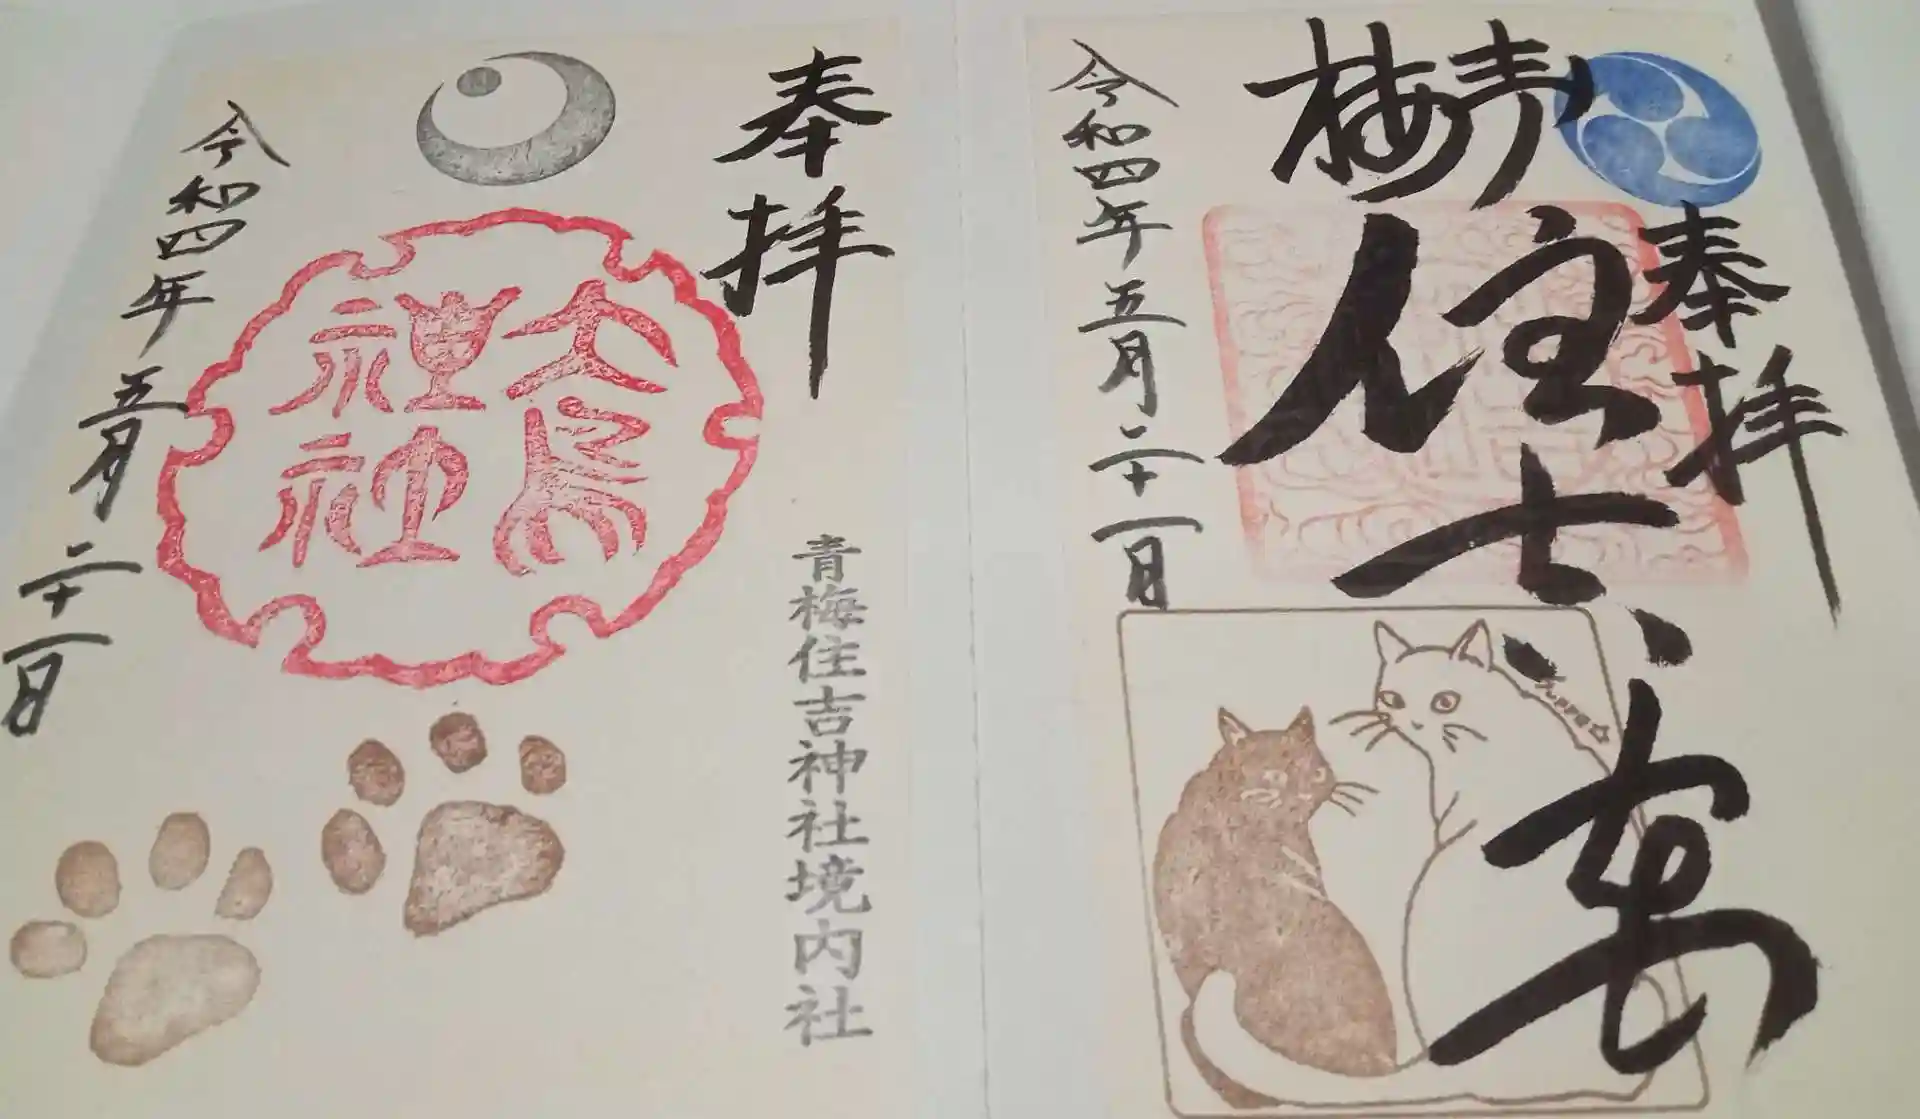 奉拝
青梅
住吉
令和四年五月二十一日
奉拝
大鳥
神社
青梅住吉神社境内社
令和四年五月二十一日